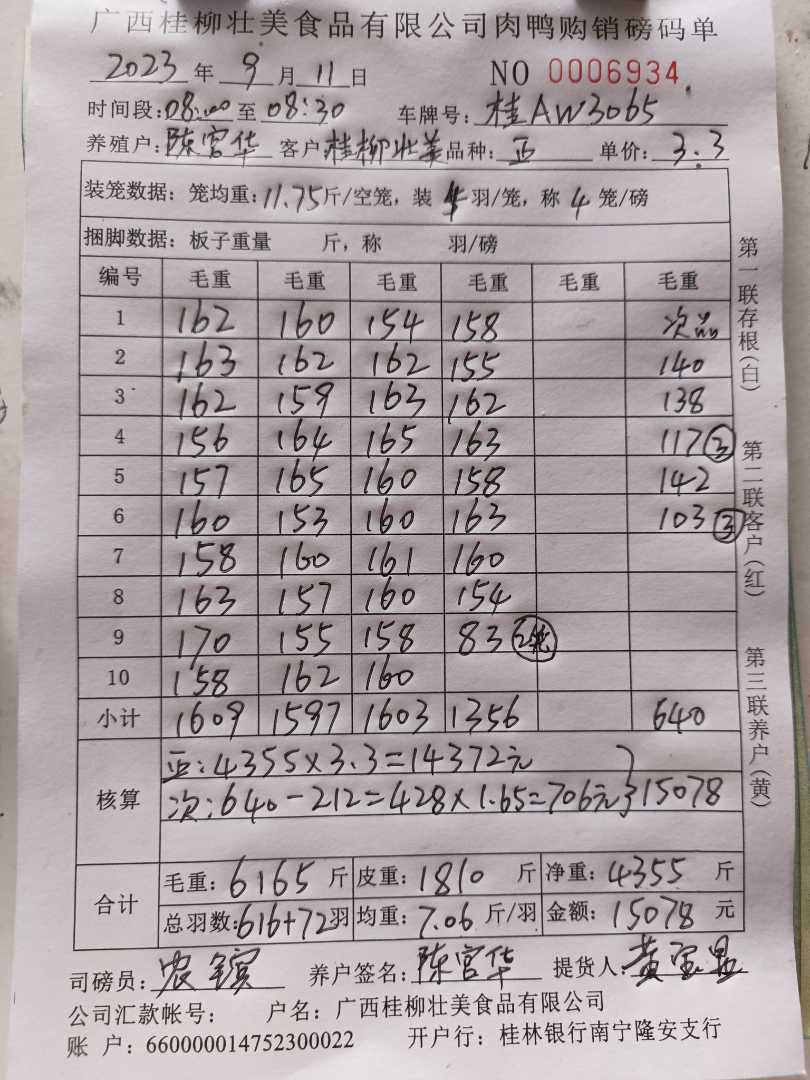 广西桂柳壮美食品有限公司肉鸭购销磅码单
2023 年 9 月 11 日 NO 0006934
时间段:08:00 至 08:30 车牌号:桂AW3065
养殖户:陈官华 客户 桂柳壮美 品种:正 单价:3.3
装笼数据:笼均重:11.75斤/空笼,装 4 羽/笼,称 4 笼/磅
捆脚数据:板子重量 斤,称 羽/磅
编号 毛重 毛重 毛重 毛重 毛重 毛重
1 162 160 154 158 次品
2 163 162 162 155 140
3 162 159 163 162 138
4 156 164 165 163 117③
5 157 165 160 158 142
6 160 153 160 163 103③
7 158 160 161 160
8 163 157 160 154
9 170 155 158 83
10 158 162 160
小计 1609 1597 1603 1356 640
核算
正:4355×3.3=14372元
次:640-212=428×1.65=706元}15078
合计
毛重:6165 斤 皮重:1810 斤 净重:4355 斤
总羽数:616+72羽 均重:7.06 斤/羽 金额:15078 元
司磅员:农 养户签名:陈官华 提货人:黄
公司汇款帐号: 户名:广西桂柳壮美食品有限公司
账 户:660000014752300022 开户行:桂林银行南宁隆安支行
第一联存根(白)
第二联客户(红)
第三联养户(黄)